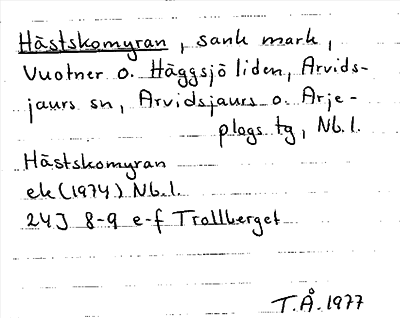 Hästskomyran, sank mark,
Vuotner o. Häggsjöliden, Arvids-
jaurs sn, Arvidsjaurs o. Arje-
plogs tg, Nb.l.
Hästskomyran
ek (1974) Nb.l.
24J 8-9 e-f Trollberget
T.Å. 1977